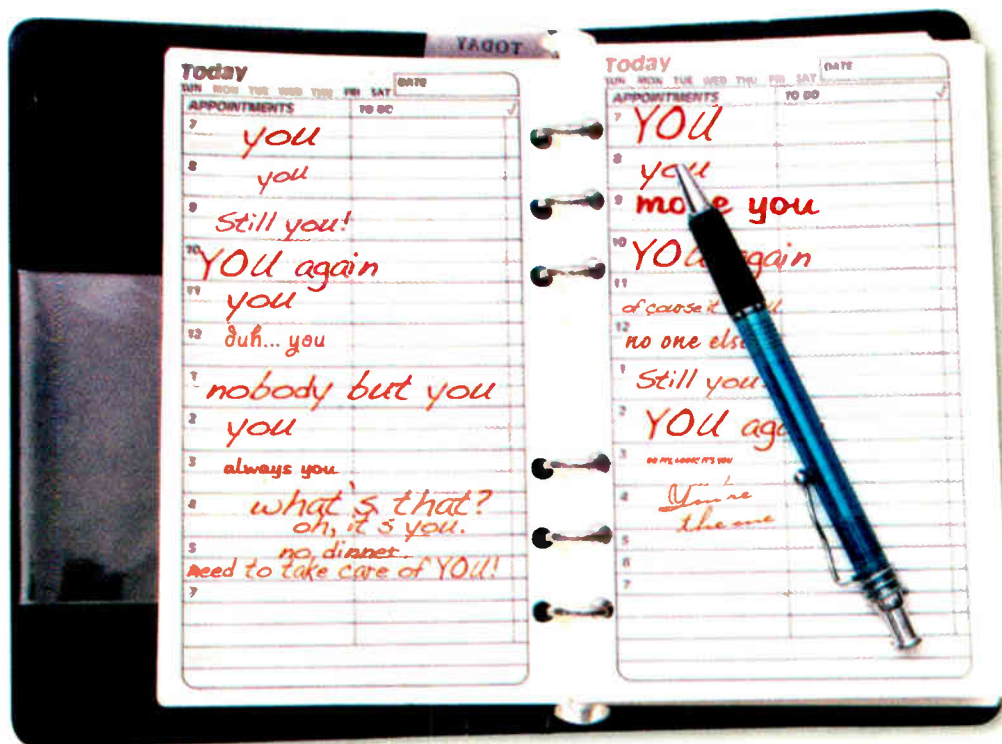 TODAY
Today
SUN MON TUE WED THU FRI SAT
DATE
APPOINTMENTS
TO DO
7
you
8
you
9
Still you!
10
YOU again
11
you
12
duh... you
1
nobody but you
2
you
3
always you
4
what's that?
oh, it's you.
5
no, dinner.
need to take care of YOU!
7
Today
SUN MON TUE WED THU FRI SAT
DATE
APPOINTMENTS
TO DO
7
YOU
8
you
9
more you
10
YOU again
11
of course it
12
no one else
1
Still you
2
YOU again
3
OH MY, LOOK! IT'S YOU
4
You're
the one
5
6
7